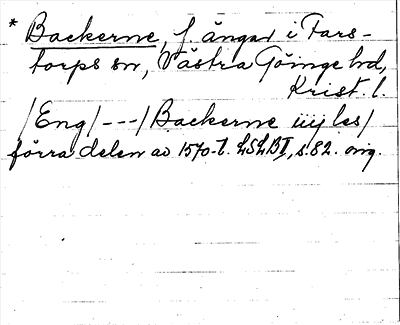 * Backerne, f. ängar i Fars-
torps sn, Västra Göinge hd,
Krist. l.
/Eng/---/Backerne iiij les/
förra delen av 1570-t. LSLBII, s. 82. orig.